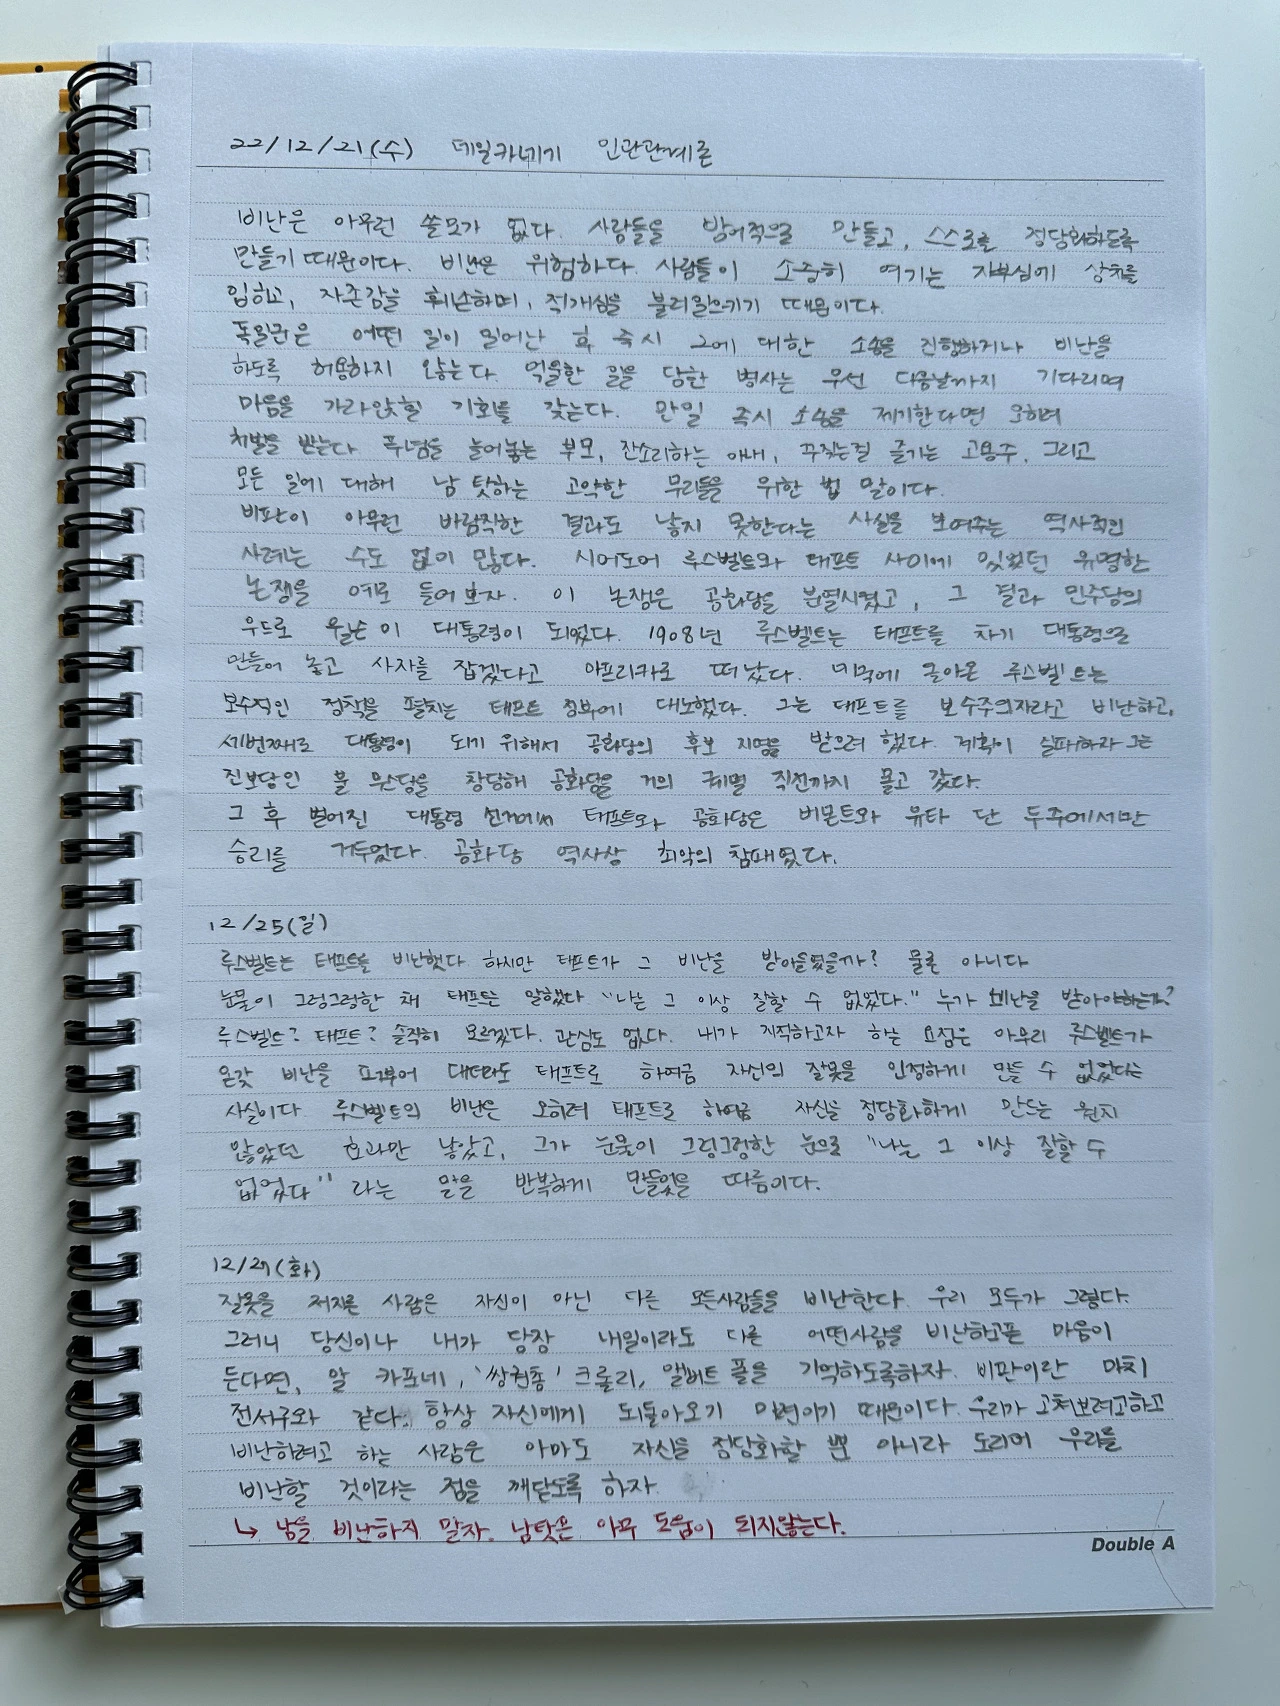 22/12/21(수) 데일카네기 인간관계론
비난은 아무런 쓸모가 없다. 사람들을 방어적으로 만들고, 스스로를 정당화하도록
만들기 때문이다. 비난은 위험하다. 사람들이 소중히 여기는 자부심에 상처를
입히고, 자존감을 훼손하며, 적개심을 불러일으키기 때문이다.
독일군은 어떤 일이 일어난 후 즉시 그에 대한 소송을 진행하거나 비난을
하도록 허용하지 않는다. 억울한 일을 당한 병사는 우선 다음날까지 기다리며
마음을 가라앉힐 기회를 갖는다. 만일 즉시 소송을 제기한다면 오히려
처벌을 받는다 푸념을 늘어놓는 부모, 잔소리하는 아내, 꾸짖는걸 즐기는 고용주, 그리고
모든 일에 대해 남 탓하는 고약한 무리들을 위한 법 말이다.
비판이 아무런 바람직한 결과도 낳지 못한다는 사실을 보여주는 역사적인
사례는 수도 없이 많다. 시어도어 루스벨트와 태프트 사이에 있었던 유명한
논쟁을 예로 들어보자. 이 논쟁은 공화당을 분열시켰고, 그 결과 민주당의
우드로 윌슨이 대통령이 되었다. 1908년 루스벨트는 태프트를 차기 대통령으로
만들어 놓고 사자를 잡겠다고 아프리카로 떠났다. 미국에 돌아온 루스벨트는
보수적인 정책을 펼치는 태프트 정부에 대노했다. 그는 태프트를 보수주의자라고 비난하고,
세번째로 대통령이 되기 위해서 공화당의 후보 지명을 받으려 했다. 계획이 실패하자 그는
진보당인 불 무스당을 창당해 공화당을 거의 궤멸 직전까지 몰고 갔다.
그 후 벌어진 대통령 선거에서 태프트와 공화당은 버몬트와 유타 단 두주에서만
승리를 거두었다. 공화당 역사상 최악의 참패였다.
12/25(일)
루스벨트는 태프트를 비난했다 하지만 태프트가 그 비난을 받아들였을까? 물론 아니다
눈물이 그렁그렁한 채 태프트는 말했다 "나는 그 이상 잘할 수 없었다." 누가 비난을 받아야하는가?
루스벨트? 태프트? 솔직히 모르겠다. 관심도 없다. 내가 지적하고자 하는 요점은 아무리 루스벨트가
온갖 비난을 퍼부어 대더라도 태프트로 하여금 자신의 잘못을 인정하게 만들 수 없었다는
사실이다. 루스벨트의 비난은 오히려 태프트로 하여금 자신을 정당화하게 만드는 원치
않았던 효과만 낳았고, 그가 눈물이 그렁그렁한 눈으로 "나는 그 이상 잘할 수
없었다" 라는 말을 반복하게 만들었을 따름이다.
12/27(화)
잘못을 저지른 사람은 자신이 아닌 다른 모든사람들을 비난한다. 우리 모두가 그렇다.
그러니 당신이나 내가 당장 내일이라도 다른 어떤사람을 비난하고픈 마음이
든다면, 알 카포네, '쌍권총' 크롤리, 앨버트 폴을 기억하도록하자. 비판이란 마치
전서구와 같다. 항상 자신에게 되돌아오기 마련이기 때문이다. 우리가 고쳐보려고하고
비난하려고 하는 사람은 아마도 자신을 정당화할 뿐 아니라 도리어 우리를
비난할 것이라는 점을 깨닫도록 하자.
↳ 남을 비난하지 말자. 남탓은 아무 도움이 되지않는다.
Double A